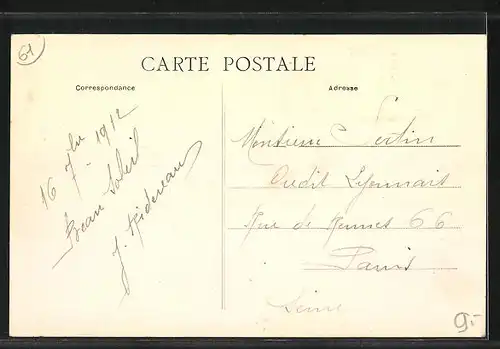 61
CARTE POSTALE
Correspondance
Adresse
16 7bre 1912
Beau Soleil
J.
Monsieur Sertin
Crédit Lyonnais
Rue de Rennes 66
Paris
Seine
9.-